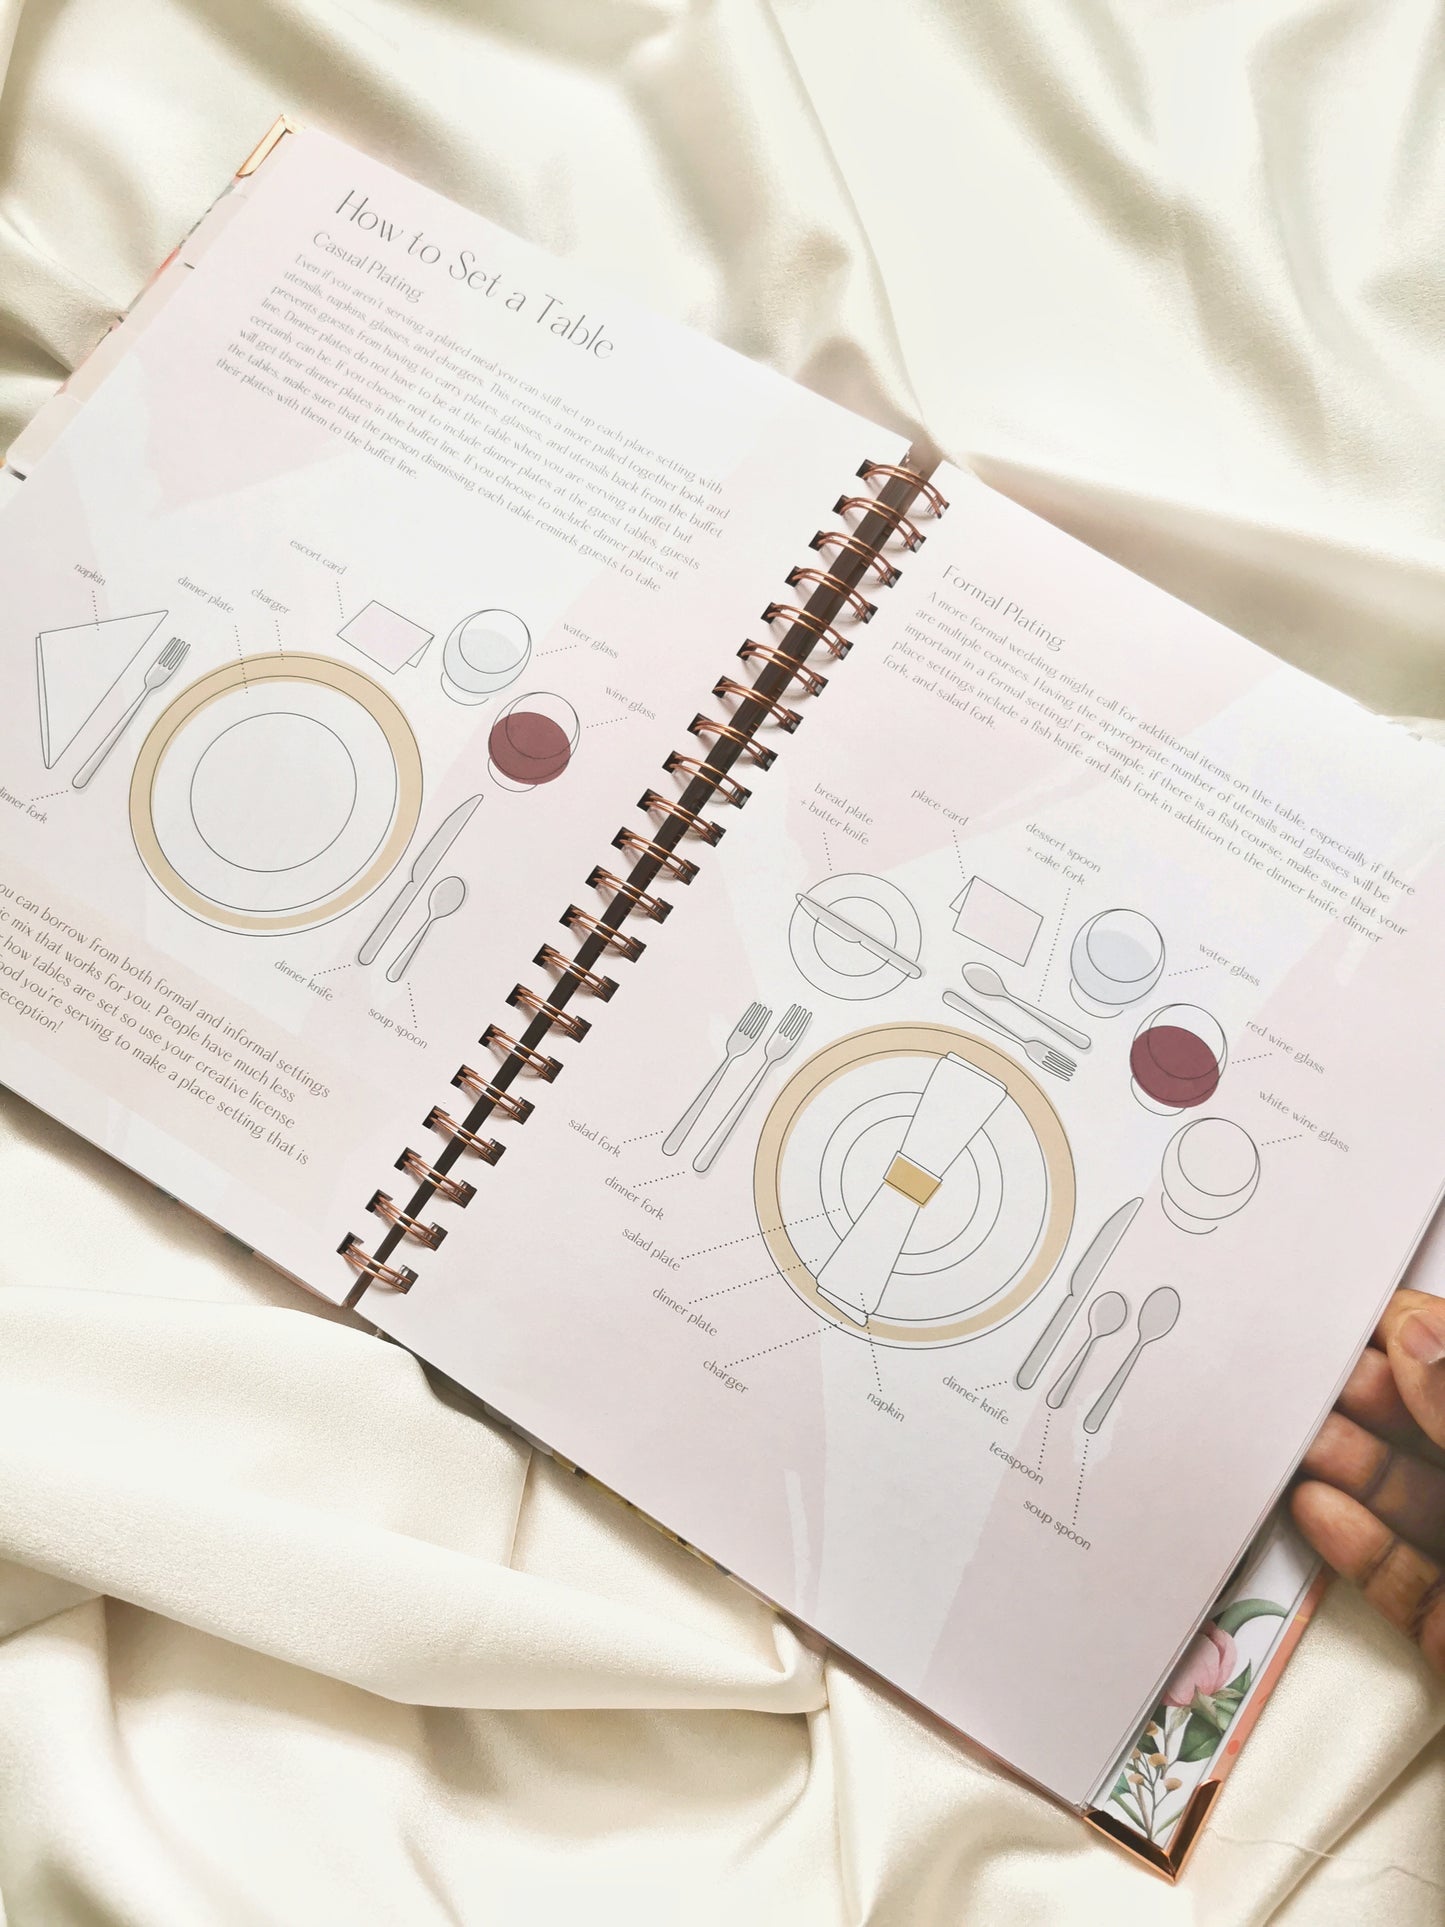 How to Set a Table
Casual Plating
Even if you aren't serving a plated meal you can still set up each place setting with
utensils, napkins, glasses, and chargers. This creates a more pulled together look and
prevents guests from having to carry plates, glasses, and utensils back from the buffet
line. Dinner plates do not have to be at the table when you are serving a buffet but
certainly can be. If you choose not to include dinner plates at the guest tables, guests
will get their dinner plates in the buffet line. If you choose to include dinner plates at
the tables, make sure that the person dismissing each table reminds guests to take
their plates with them to the buffet line.
napkin
dinner plate
charger
escort card
water glass
wine glass
dinner fork
dinner knife
soup spoon
ou can borrow from both formal and informal settings
ic mix that works for you. People have much less
how tables are set so use your creative license
ood you're serving to make a place setting that is
reception!
Formal Plating
A more formal wedding might call for additional items on the table, especially if there
are multiple courses. Having the appropriate number of utensils and glasses will be
important in a formal setting! For example, if there is a fish course, make sure that your
place settings include a fish knife and fish fork in addition to the dinner knife, dinner
fork, and salad fork.
bread plate
+ butter knife
place card
dessert spoon
+ cake fork
water glass
red wine glass
white wine glass
salad fork
dinner fork
salad plate
dinner plate
charger
napkin
dinner knife
teaspoon
soup spoon